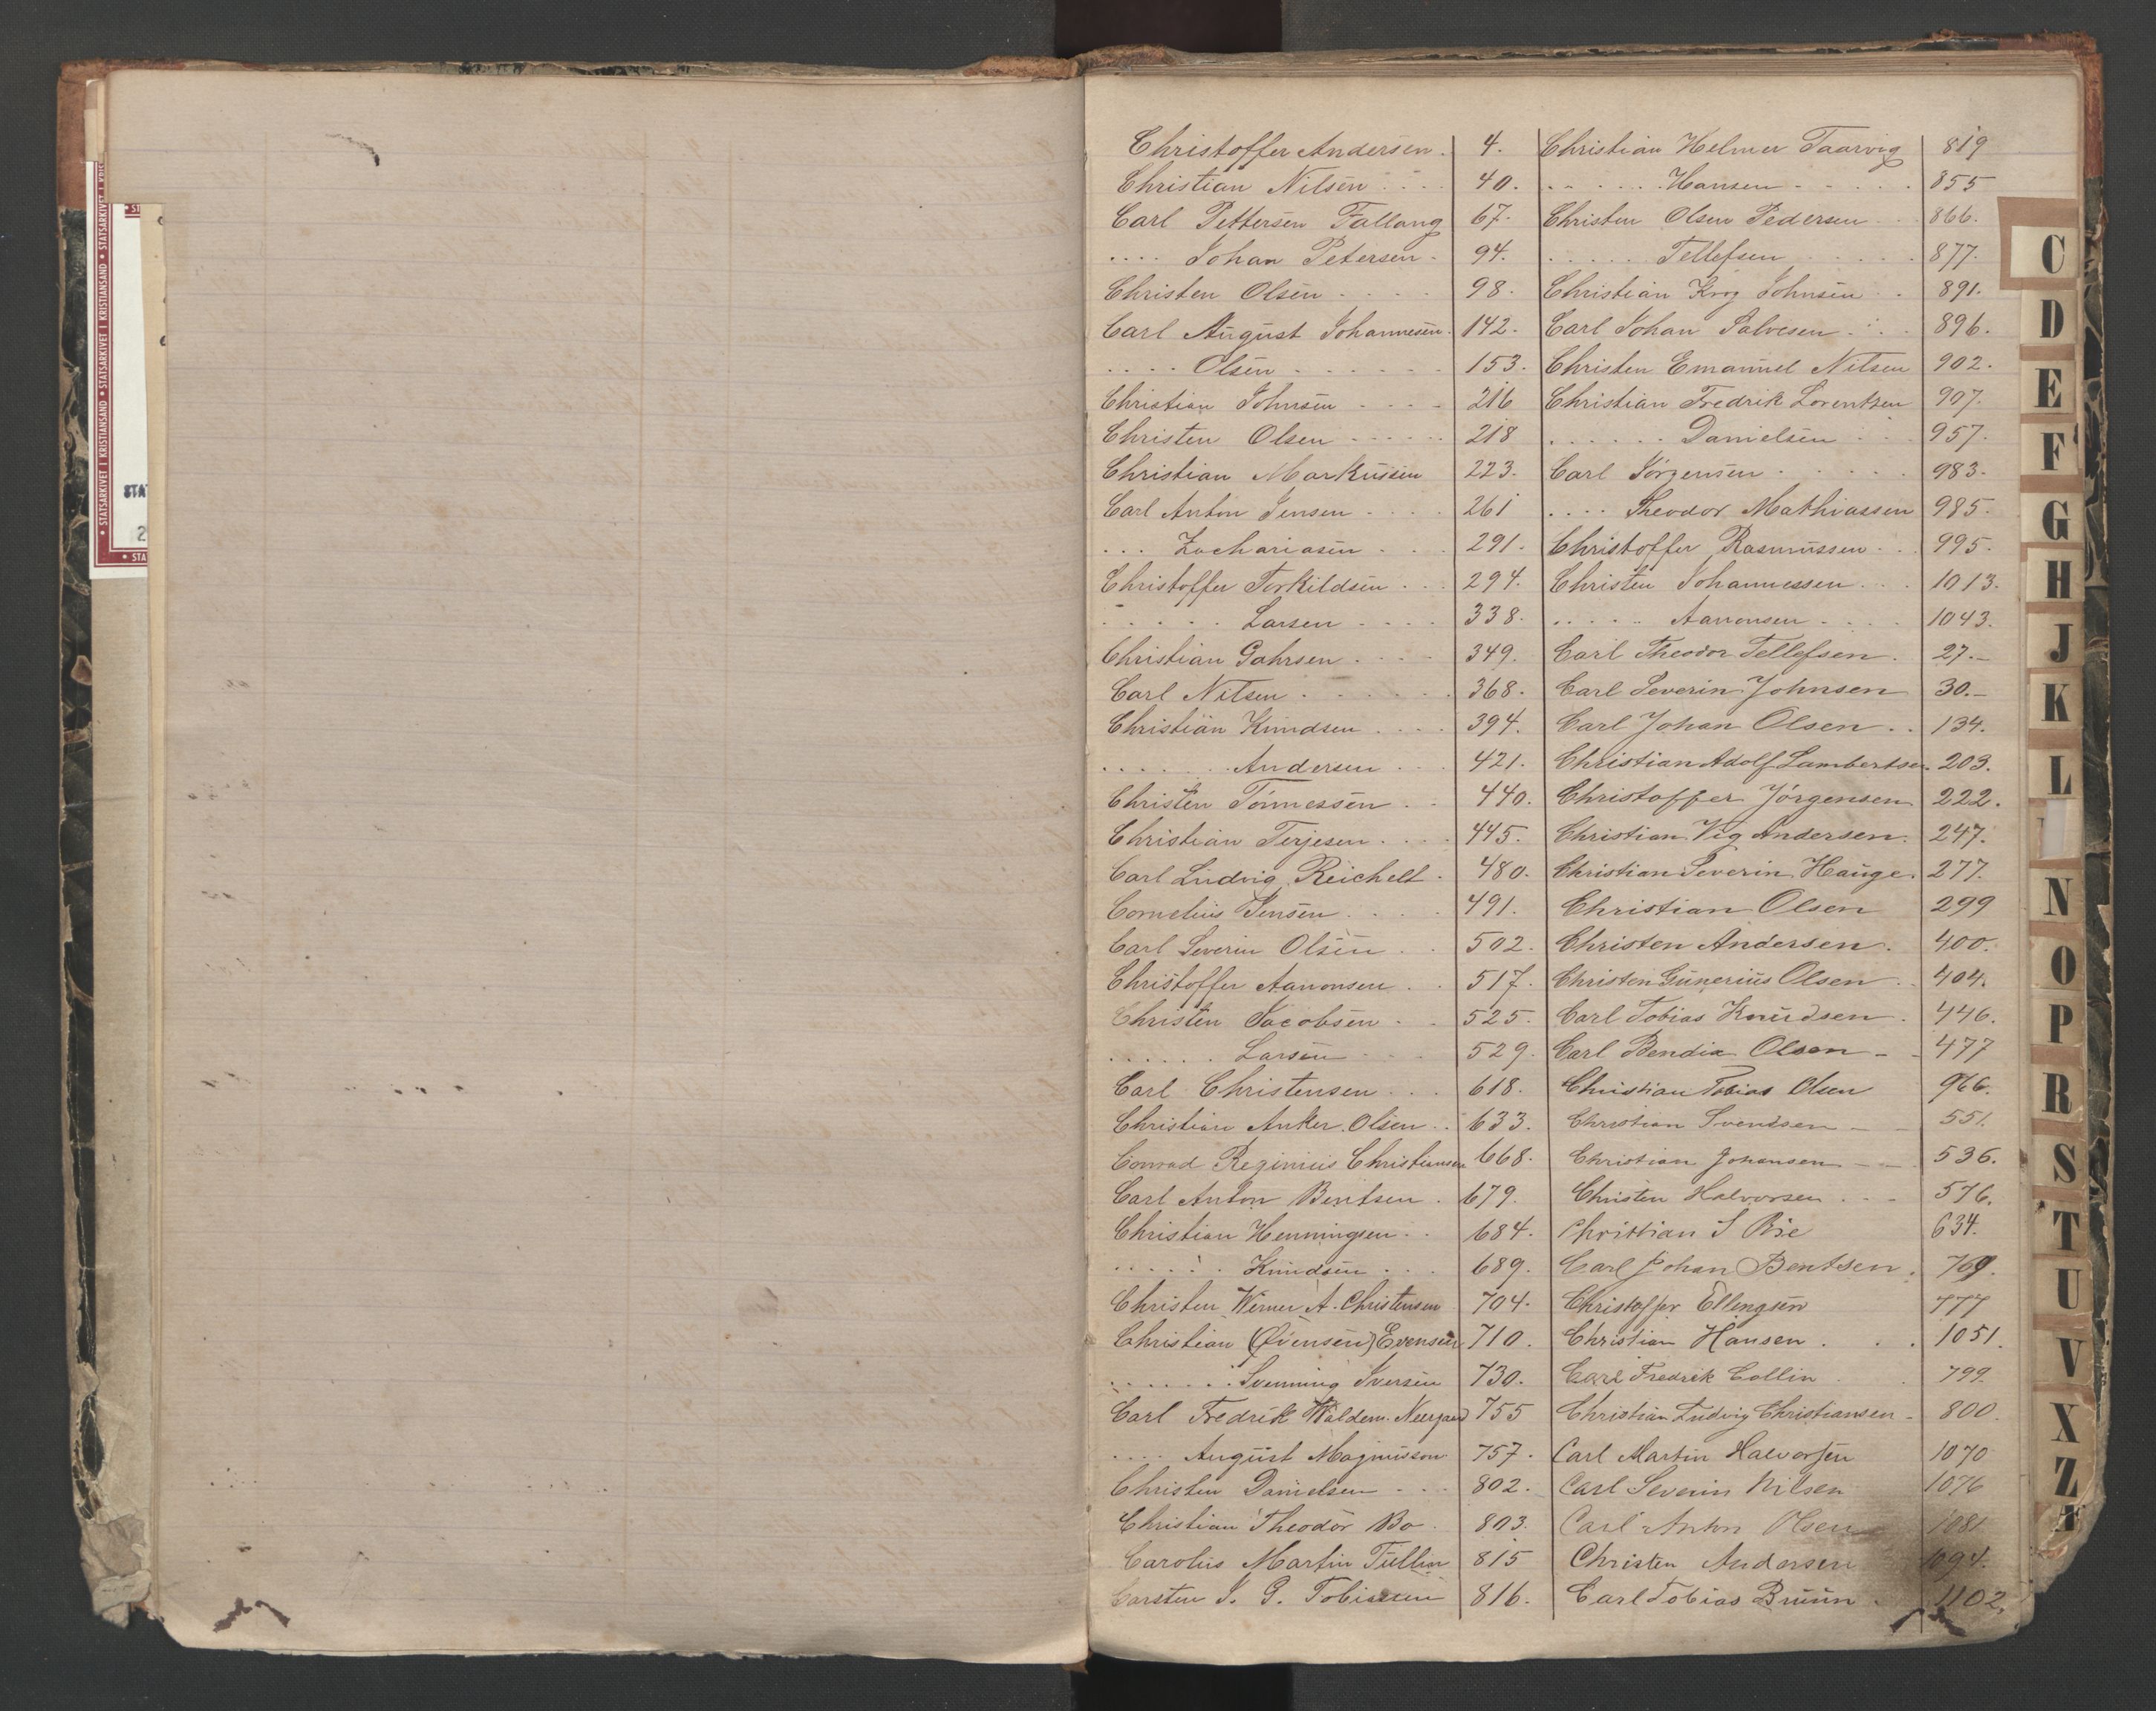 Christoffer Andersen. 4.
Christian Nilsen .... 40.
Carl Pettersen Fallang 67.
.... Johan Petersen. 94.
Christen Olsen .... 98.
Carl August Johannesen. 142.
.... Olsen ...... 153.
Christian Johnsen .... 216
Christen Olsen ..... 218
Christian Markussen 223.
Carl Anton Jensen .... 261
... Zachariasen ... 291.
Christoffer Torkildsen ... 294.
..... Larsen .... 338.
Christian Gahrsen .... 349.
Carl Nilsen ...... 368.
Christian Knudsen .... 394.
....... Andersen ... 421.
Christen Tönnessen .. 440.
Christian Terjesen .... 445.
Carl Ludvig Reichelt. 480.
Cornelius Jensen .... 491.
Carl Severin Olsen .. 502.
Christoffer Aanonsen .. 517.
Christen Jacobsen .. 525.
...... Larsen ... 529.
Carl Christensen ... 618.
Christian Anker Olsen .. 633.
Conrad Reginius Christiansen 668.
Carl Anton Bentsen . 679.
Christian Henningsen .. 684.
...... Knudsen ... 689.
Christen Werner A. Christensen 704.
Christian (Övensen) Evensen 710.
....... Svenning Iversen 730.
Carl Fredrik Waldem. Neergaard 755
.... August Magnusson 757.
Christen Danielsen ... 802.
Christian Theodor Bo . 803.
Carolus Martin Tullin 815
Carsten J. G. Tobiasen 816.
Christian Helmer Taarvig 819
...... Hansen ..... 855
Christen Olsen Pedersen .. 866.
..... Tellefsen ..... 877.
Christian Krog Johnsen .. 891.
Carl Johan Salvesen ... 896.
Christen Emanuel Nilsen 902.
Christian Fredrik Lorentzen 907.
...... Danielsen ... 957.
Carl Jörgensen ..... 983.
.... Theodor Mathiassen 985.
Christoffer Rasmussen ... 995.
Christen Johannessen ... 1013.
..... Aanonsen .... 1043.
Carl Theodor Tellefsen . 27.-
Carl Severin Johnsen 30.-
Carl Johan Olsen .. 134.
Christian Adolf Lambertsen. 203.
Christoffer Jörgensen. 222.
Christian Vig Andersen. 247.
Christian Severin Hauge. 277.
Christian Olsen 299
Christen Andersen. 400.
Christen Gunerius Olsen .. 404.
Carl Tobias Knudsen . 446.
Carl Bendix Olsen - - 477
Christian Tobias Olsen 966.
Christian Svendsen - - 551.
Christian Johansen - - 536.
Christen Halvorsen - - - 576.
Christian S Bie 634.
Carl Johan Bentsen. 769.
Christoffer Ellengsen 777
Christian Hansen . . . 1051.
Carl Fredrik Collin . . 799.
Christian Ludvig Christiansen - 800.
Carl Martin Halvorsen 1070
Carl Severin Nilsen 1076
Carl Anton Olsen 1081
Christen Andersen 1094.
Carl Tobias Bruun . 1102.
C
D
E
F
G
H
J
K
L
N
O
P
R
S
T
U
V
X
Z
STATSARKIVET I KRISTIANSAND • STATSARKIVET I KRISTIANSAND • STATSARKIVET I